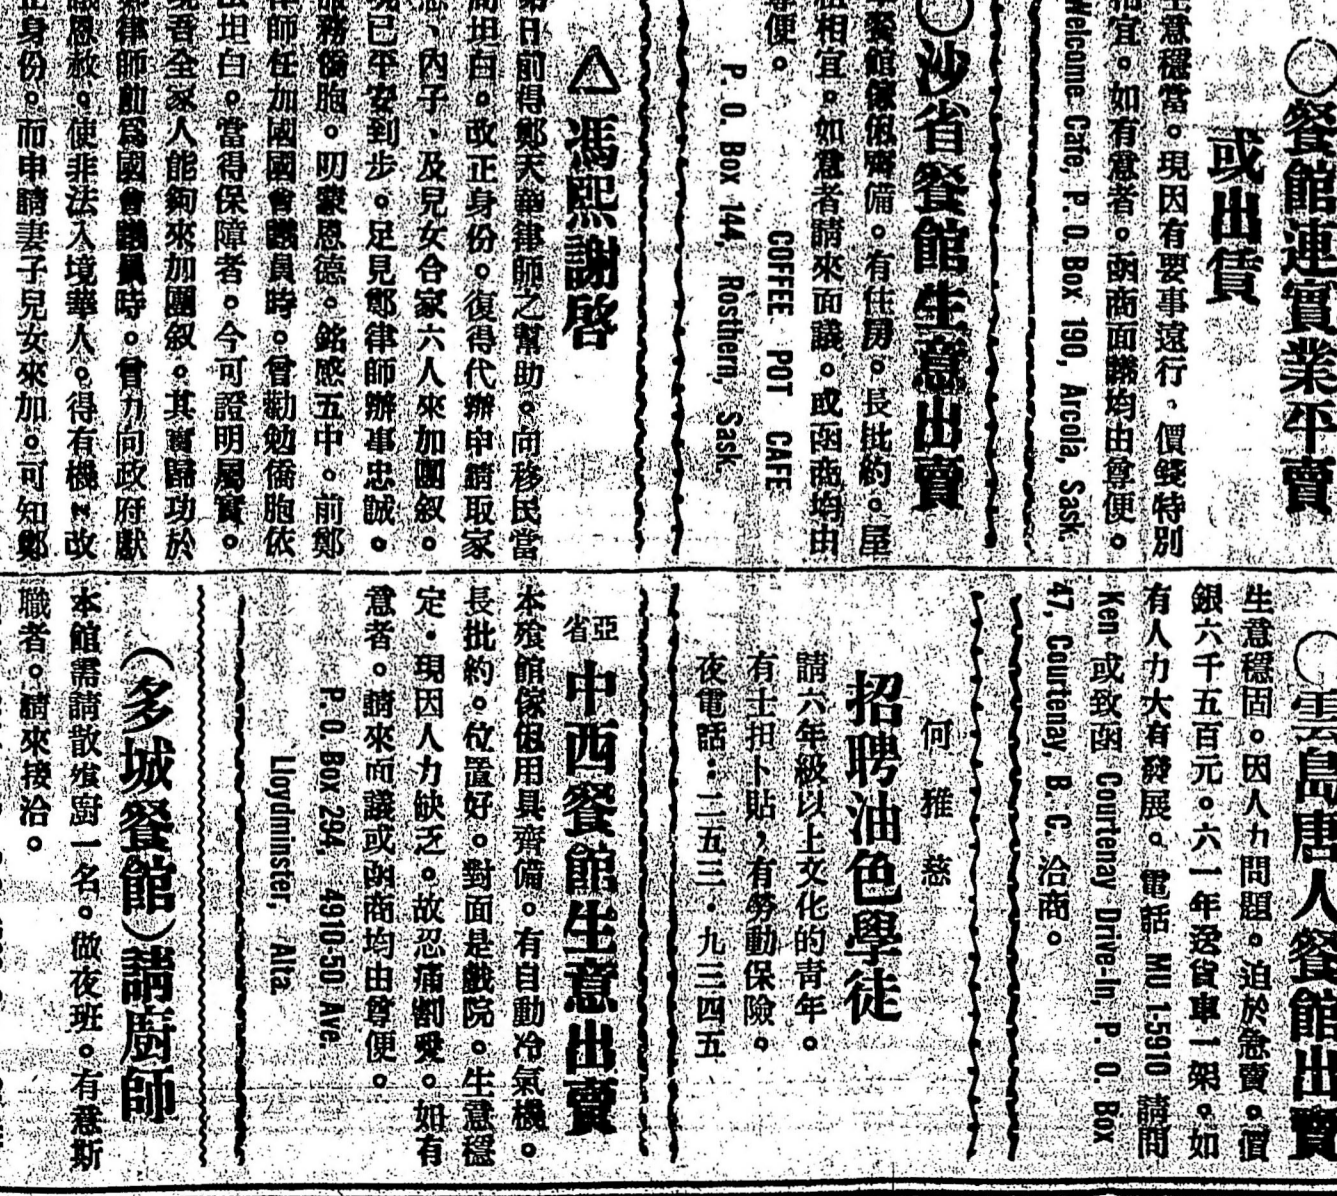 ○餐館連實業平賣
或出賃
生意穩當。現因有要事遠行。價錢特別
相宜。如有意者。函商面議均由尊便。
Welcome Cafe, P. O. Box 190, Arcola, Sask.
○沙省餐館生意出賣
餐館傢俬齊備。有住房。長批約。屋
租相宜。如意者請來面議。或函商均由
尊便。
COFFEE POT CAFE
P. O. Box 144, Rosthern, Sask.
△馮熙謝啓
弟日前得鄭天華律師之幫助。向移民當
局坦白。改正身份。復得代辦申請取家
慈、內子、及兒女合家六人來加團叙。
現已平安到步。足見鄭律師辦事忠誠。
服務僑胞。叨蒙恩德。銘感五中。前鄭
律師任加國國會議員時。曾勸勉僑胞依
法坦白。當得保障者。今可證明屬實。
吾全家人能夠來加團叙。其實歸功於
鄭律師前爲國會議員時。曾力向政府獻
議恩赦。使非法入境華人。得有機 改
正身份。而申請妻子兒女來加。可知鄭
○雲島唐人餐館出賣
生意穩固。因人力問題。迫於急賣。價
銀六千五百元。六一年送貨車一架。如
有人力大有發展。電話 MU 1-5910 請問
Ken 或致函 Courtenay Drive-In, P. O. Box
47, Courtenay, B. C. 洽商。
何雅慈
招聘油色學徒
請六年級以上文化的青年。
有士担卜貼，有勞動保險。
夜電話：二五三・九三四五
亞省 中西餐館生意出賣
本飱館傢俬用具齊備。有自動冷氣機。
長批約。位置好。對面是戲院。生意穩
定。現因人力缺乏。故忍痛割愛。如有
意者。請來面議或函商均由尊便。
P. O. Box 294, 4910-50 Ave.
Lloydminster, Alta.
（多城餐館）請廚師
本館需請散飱廚一名。做夜班。有意斯
職者。請來接洽。